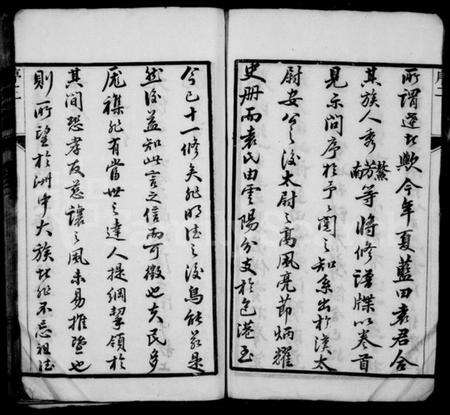 所謂逆者歟今年夏藍田袁君合
其族人秀鰲芳南等將修譜牒以卷首
見示問序於予予閱之知系出於漢太
尉安公之後太尉之高風亮節炳耀
史册而袁氏由雲陽分支於邑港至
今已十一修矣非明德之後烏能若是
然後益知此言之信而可徵也夫民多
龎襍非有當世之達人提綱挈領於
其間恐孝友慈讓之風未易推暨也
則所望於洲中大族者非不忘祖德